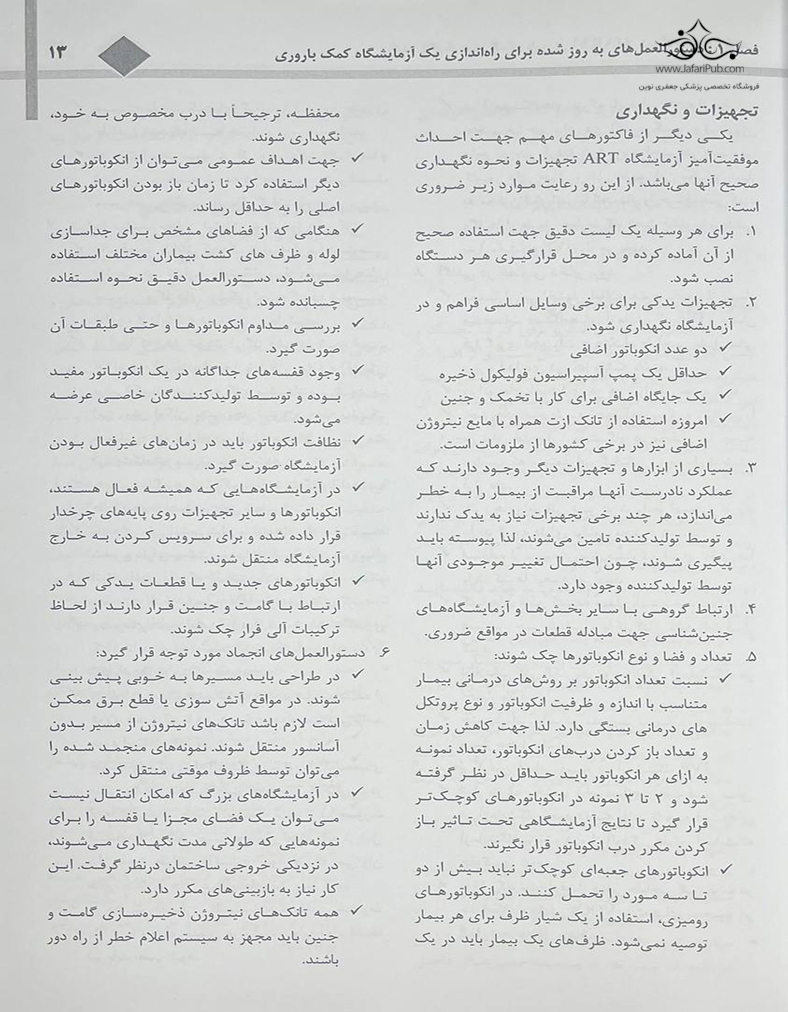 فصل ۱: دستورالعمل‌های به روز شده برای راه‌اندازی یک آزمایشگاه کمک باروری
۱۳
www.JafariPub.com
فروشگاه تخصصی پزشکی جعفری نوین
تجهیزات و نگهداری
یکی دیگر از فاکتورهای مهم جهت احداث
موفقیت‌آمیز آزمایشگاه ART تجهیزات و نحوه نگهداری
صحیح آنها می‌باشد. از این رو رعایت موارد زیر ضروری
است:
۱. برای هر وسیله یک لیست دقیق جهت استفاده صحیح
از آن آماده کرده و در محل قرارگیری هر دستگاه
نصب شود.
۲. تجهیزات یدکی برای برخی وسایل اساسی فراهم و در
آزمایشگاه نگهداری شود.
✓ دو عدد انکوباتور اضافی
✓ حداقل یک پمپ آسپیراسیون فولیکول ذخیره
✓ یک جایگاه اضافی برای کار با تخمک و جنین
✓ امروزه استفاده از تانک ازت همراه با مایع نیتروژن
اضافی نیز در برخی کشورها از ملزومات است.
۳. بسیاری از ابزارها و تجهیزات دیگر وجود دارند که
عملکرد نادرست آنها مراقبت از بیمار را به خطر
می‌اندازد، هر چند برخی تجهیزات نیاز به یدک ندارند
و توسط تولیدکننده تامین می‌شوند، لذا پیوسته باید
پیگیری شوند، چون احتمال تغییر موجودی آنها
توسط تولیدکننده وجود دارد.
۴. ارتباط گروهی با سایر بخش‌ها و آزمایشگاه‌های
جنین‌شناسی جهت مبادله قطعات در مواقع ضروری.
۵. تعداد و فضا و نوع انکوباتورها چک شوند:
✓ نسبت تعداد انکوباتور بر روش‌های درمانی بیمار
متناسب با اندازه و ظرفیت انکوباتور و نوع پروتکل
های درمانی بستگی دارد. لذا جهت کاهش زمان
و تعداد باز کردن درب‌های انکوباتور، تعداد نمونه
به ازای هر انکوباتور باید حداقل در نظر گرفته
شود و ۲ تا ۳ نمونه در انکوباتورهای کوچک‌تر
قرار گیرد تا نتایج آزمایشگاهی تحت تاثیر باز
کردن مکرر درب انکوباتور قرار نگیرند.
✓ انکوباتورهای جعبه‌ای کوچک‌تر نباید بیش از دو
تا سه مورد را تحمل کنند. در انکوباتورهای
رومیزی، استفاده از یک شیار ظرف برای هر بیمار
توصیه نمی‌شود. ظرف‌های یک بیمار باید در یک
محفظه، ترجیحاً با درب مخصوص به خود،
نگهداری شوند.
✓ جهت اهداف عمومی می‌توان از انکوباتورهای
دیگر استفاده کرد تا زمان باز بودن انکوباتورهای
اصلی را به حداقل رساند.
✓ هنگامی که از فضاهای مشخص برای جداسازی
لوله و ظرف های کشت بیماران مختلف استفاده
می‌شود، دستورالعمل دقیق نحوه استفاده
چسبانده شود.
✓ بررسی مداوم انکوباتورها و حتی طبقات آن
صورت گیرد.
✓ وجود قفسه‌های جداگانه در یک انکوباتور مفید
بوده و توسط تولیدکنندگان خاصی عرضه
می‌شود.
✓ نظافت انکوباتور باید در زمان‌های غیرفعال بودن
آزمایشگاه صورت گیرد.
✓ در آزمایشگاه‌هایی که همیشه فعال هستند،
انکوباتورها و سایر تجهیزات روی پایه‌های چرخدار
قرار داده شده و برای سرویس کردن به خارج
آزمایشگاه منتقل شوند.
✓ انکوباتورهای جدید و یا قطعات یدکی که در
ارتباط با گامت و جنین قرار دارند از لحاظ
ترکیبات آلی فرار چک شوند.
۶. دستورالعمل‌های انجماد مورد توجه قرار گیرد:
✓ در طراحی باید مسیرها به خوبی پیش بینی
شوند. در مواقع آتش سوزی یا قطع برق ممکن
است لازم باشد تانک‌های نیتروژن از مسیر بدون
آسانسور منتقل شوند. نمونه‌های منجمد شده را
می‌توان توسط ظروف موقتی منتقل کرد.
✓ در آزمایشگاه‌های بزرگ که امکان انتقال نیست
می‌توان یک فضای مجزا یا قفسه را برای
نمونه‌هایی که طولانی مدت نگهداری می‌شوند،
در نزدیکی خروجی ساختمان درنظر گرفت. این
کار نیاز به بازبینی‌های مکرر دارد.
✓ همه تانک‌های نیتروژن ذخیره‌سازی گامت و
جنین باید مجهز به سیستم اعلام خطر از راه دور
باشند.